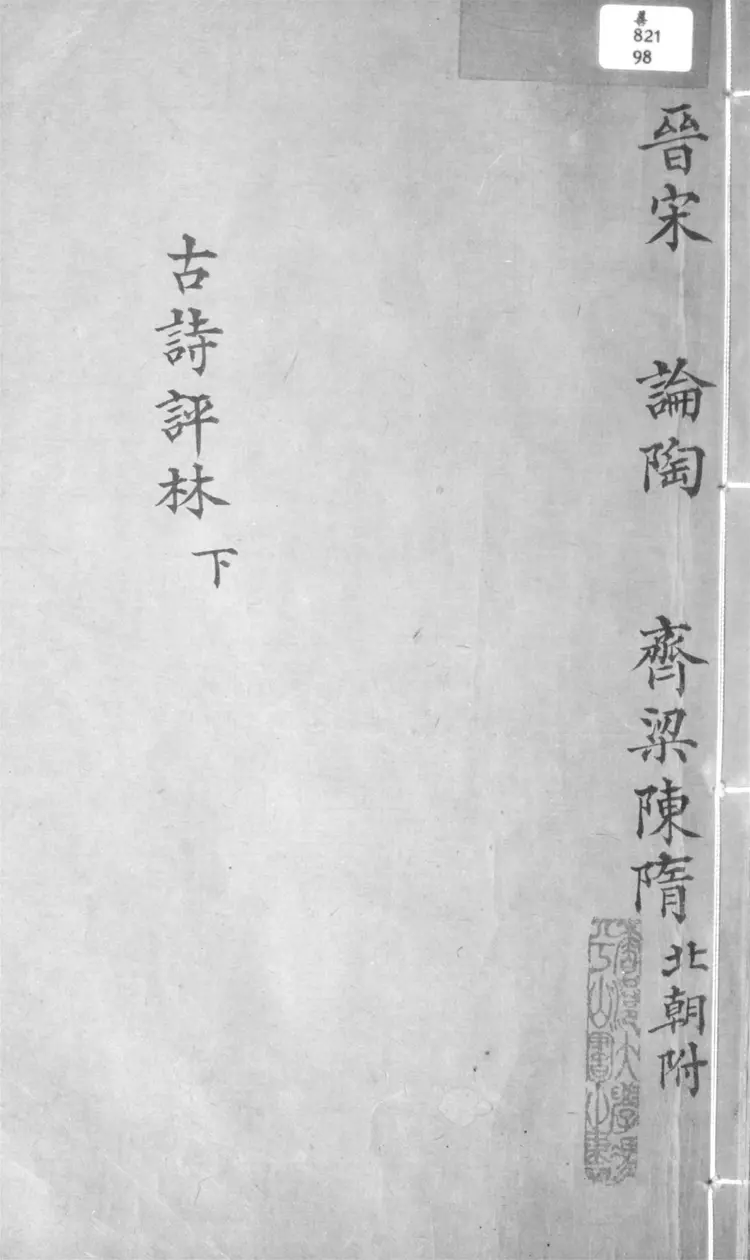 善
821
98
晉宋 論陶 齊梁陳隋北朝附
古詩評林下